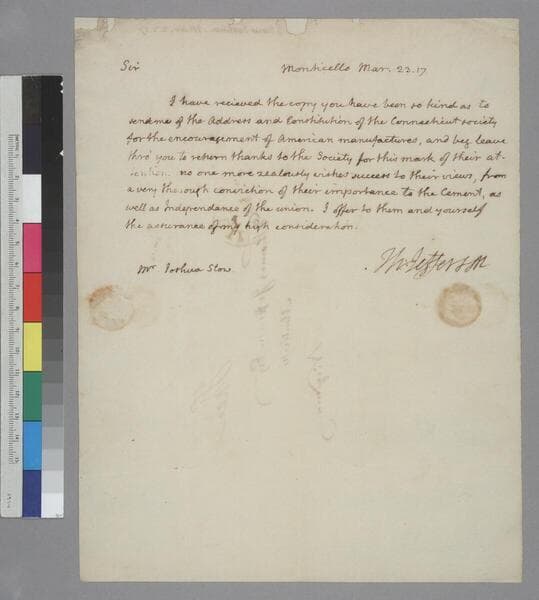 Sir Monticello Mar. 23. 17
I have recieved the copy you have been so kind as to
send me of the Address and Constitution of the Connecticut society
for the encouragement of American manufactures, and beg leave
thro' you to return thanks to the Society for this mark of their at-
-tention. no one more zealously wishes success to their views, from
a very thorough conviction of their importance to the Cement, as
well as Independance of the union. I offer to them and yourself
the assurance of my high consideration.
Th: Jefferson
Mr Joshua Stow.